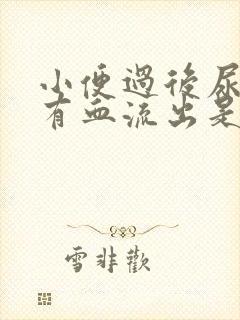 小便過後尿
有血流出是
雪非歡